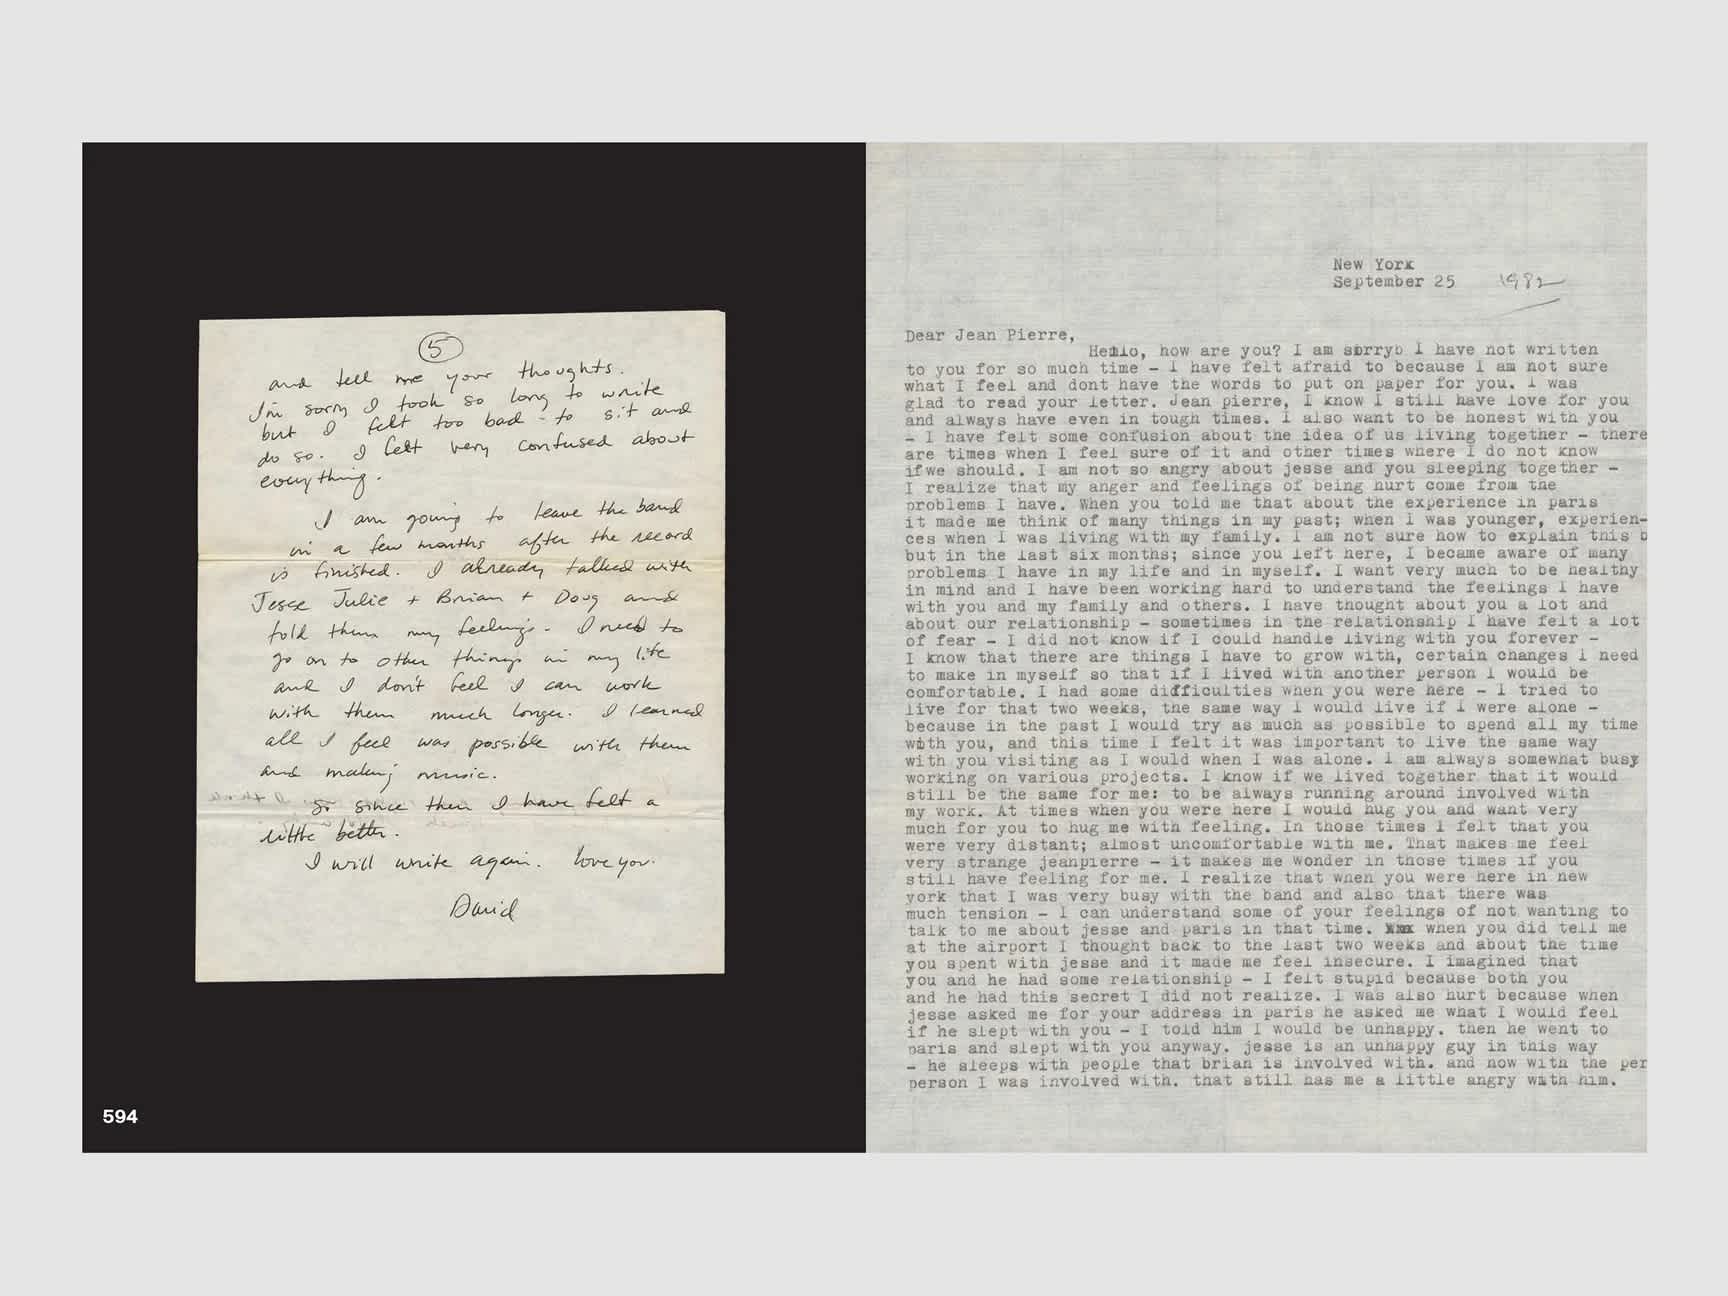 5
and tell me your thoughts.
I'm sorry I took so long to write
but I felt too bad to sit and
do so. I felt very confused about
everything.
I am going to leave the band
in a few months after the record
is finished. I already talked with
Jesse Julie + Brian + Doug and
told them my feelings. I need to
go on to other things in my life
and I don't feel I can work
with them much longer. I learned
all I feel was possible with them
and making music.
So since then I have felt a
little better.
I will write again. love you.
David
594
New York
September 25 1982
Dear Jean Pierre,
Hello, how are you? I am sorryb I have not written
to you for so much time - I have felt afraid to because I am not sure
what I feel and dont have the words to put on paper for you. I was
glad to read your letter. Jean pierre, I know I still have love for you
and always have even in tough times. I also want to be honest with you
- I have felt some confusion about the idea of us living together - there
are times when I feel sure of it and other times where I do not know
ifwe should. I am not so angry about jesse and you sleeping together -
I realize that my anger and feelings of being hurt come from the
problems I have. When you told me that about the experience in paris
it made me think of many things in my past; when I was younger, experien-
ces when I was living with my family. I am not sure how to explain this b
but in the last six months; since you left here, I became aware of many
problems I have in my life and in myself. I want very much to be healthy
in mind and I have been working hard to understand the feelings I have
with you and my family and others. I have thought about you a lot and
about our relationship - sometimes in the relationship I have felt a lot
of fear - I did not know if I could handle living with you forever -
I know that there are things I have to grow with, certain changes I need
to make in myself so that if I lived with another person I would be
comfortable. I had some difficulties when you were here - I tried to
live for that two weeks, the same way I would live if I were alone -
because in the past I would try as much as possible to spend all my time
with you, and this time I felt it was important to live the same way
with you visiting as I would when I was alone. I am always somewhat busy
working on various projects. I know if we lived together that it would
still be the same for me: to be always running around involved with
my work. At times when you were here I would hug you and want very
much for you to hug me with feeling. In those times I felt that you
were very distant; almost uncomfortable with me. That makes me feel
very strange jeanpierre - it makes me wonder in those times if you
still have feeling for me. I realize that when you were here in new
york that I was very busy with the band and also that there was
much tension - I can understand some of your feelings of not wanting to
talk to me about jesse and paris in that time. when you did tell me
at the airport I thought back to the last two weeks and about the time
you spent with jesse and it made me feel insecure. I imagined that
you and he had some relationship - I felt stupid because both you
and he had this secret I did not realize. I was also hurt because when
jesse asked me for your address in paris he asked me what I would feel
if he slept with you - I told him I would be unhappy. then he went to
paris and slept with you anyway. jesse is an unhappy guy in this way
- he sleeps with people that brian is involved with. and now with the per
person I was involved with. that still has me a little angry with him.